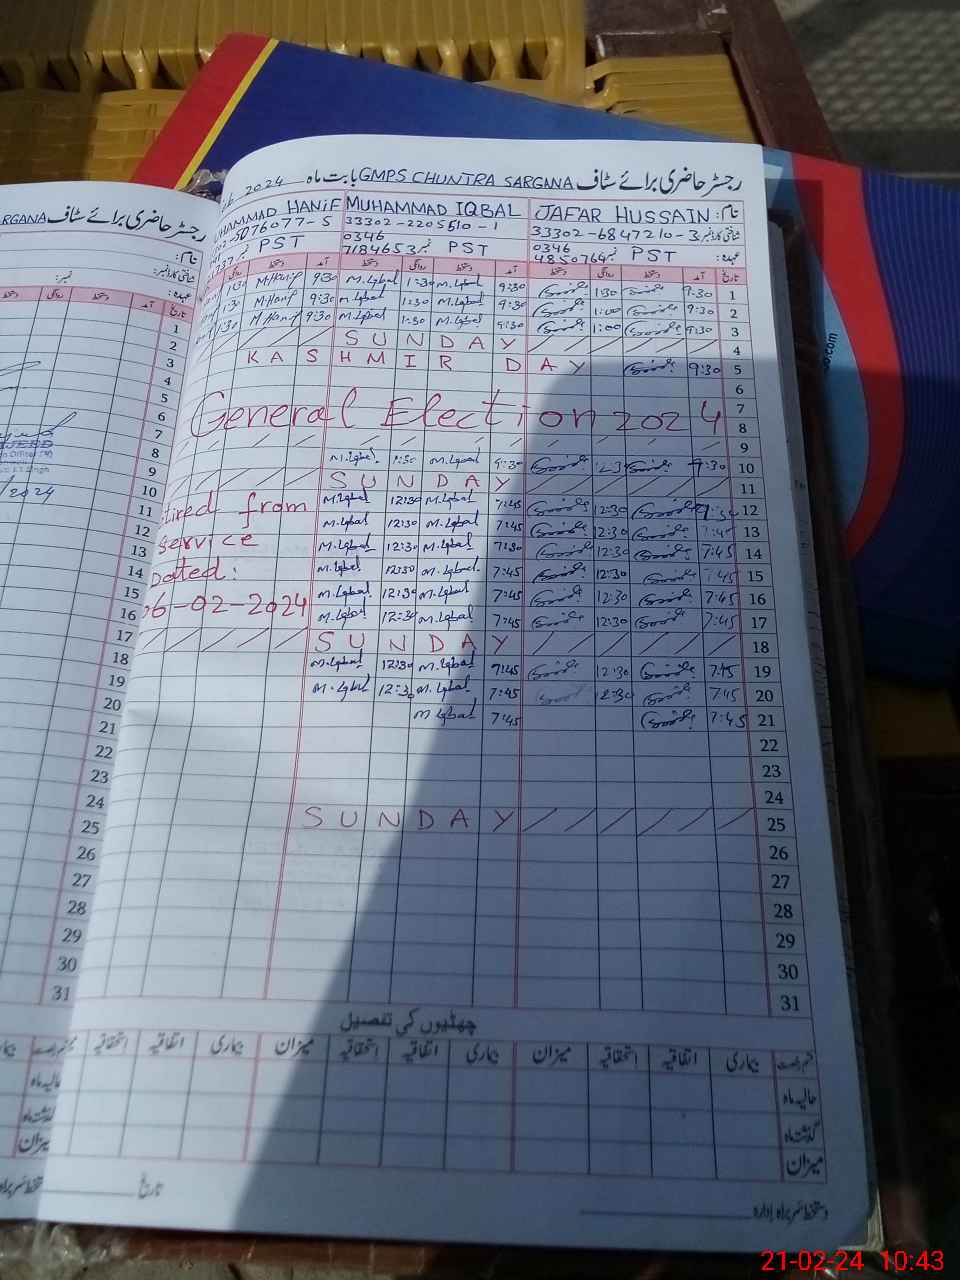 رجسٹر حاضری برائے سٹاف GMPS CHUNTRA SARGANA بابت ماہ 2024
نام: JAFAR HUSSAIN MUHAMMAD IQBAL HAMMAD HANIF
شناختی کارڈ نمبر 33302-6847210-3 33302-2205510-1 02-5076077-5
عہدہ: PST نمبر 0346 4850764 PST نمبر 0346 7184653 PST
تاریخ آمد دستخط روانگی دستخط آمد دستخط روانگی دستخط آمد دستخط روانگی
1 9:30 1:30 9:30 M.Iqbal 1:30 M.Iqbal 9:30 M.Hanif 1:30
2 9:30 1:00 9:30 M.Iqbal 1:30 M.Iqbal 9:30 M.Hanif 1:30
3 9:30 1:00 9:30 M.Iqbal 1:30 M.Iqbal 9:30 M.Hanif 1:30
4 SUNDAY
5 9:30 KASHMIR DAY
6
7 General Election 2024
8
9
10 9:30 9:30 M.Iqbal 1:30 M.Iqbal
11 SUNDAY
12 12:30 7:45 M.Iqbal 12:30 M.Iqbal
13 7:45 12:30 7:45 M.Iqbal 12:30 M.Iqbal
14 7:45 12:30 7:30 M.Iqbal 12:30 M.Iqbal
15 7:45 12:30 7:45 M.Iqbal 12:30 M.Iqbal
16 7:45 12:30 7:45 M.Iqbal 12:30 M.Iqbal
17 7:45 12:30 7:45 M.Iqbal 12:30 M.Iqbal
tired from
service
Dated:
06-02-2024
18 SUNDAY
19 7:45 12:30 7:45 M.Iqbal 12:30 M.Iqbal
20 7:45 12:30 7:45 M.Iqbal 12:30 M.Iqbal
21 7:45 7:45 M.Iqbal
22
23
24
25 SUNDAY
26
27
28
29
30
31
چھٹیوں کی تفصیل
قسم رخصت بیماری اتفاقیہ استحقاقیہ میزان بیماری اتفاقیہ استحقاقیہ میزان بیماری اتفاقیہ استحقاقیہ
حالیہ ماہ
گذشتہ ماہ
میزان
دستخط سربراہ ادارہ
تاریخ
رجسٹر حاضری برائے سٹاف RGANA
نام:
شناختی کارڈ نمبر: نمبر:
عہدہ:
تاریخ آمد دستخط روانگی
1
2
3
4
5
6
7
8
9
10
11
12
13
14
15
16
17
18
19
20
21
22
23
24
25
26
27
28
29
30
31
/2024
قسم رخصت
حالیہ ماہ
گذشتہ ماہ
میزان
دستخط سربراہ
.com
21-02-24 10:43